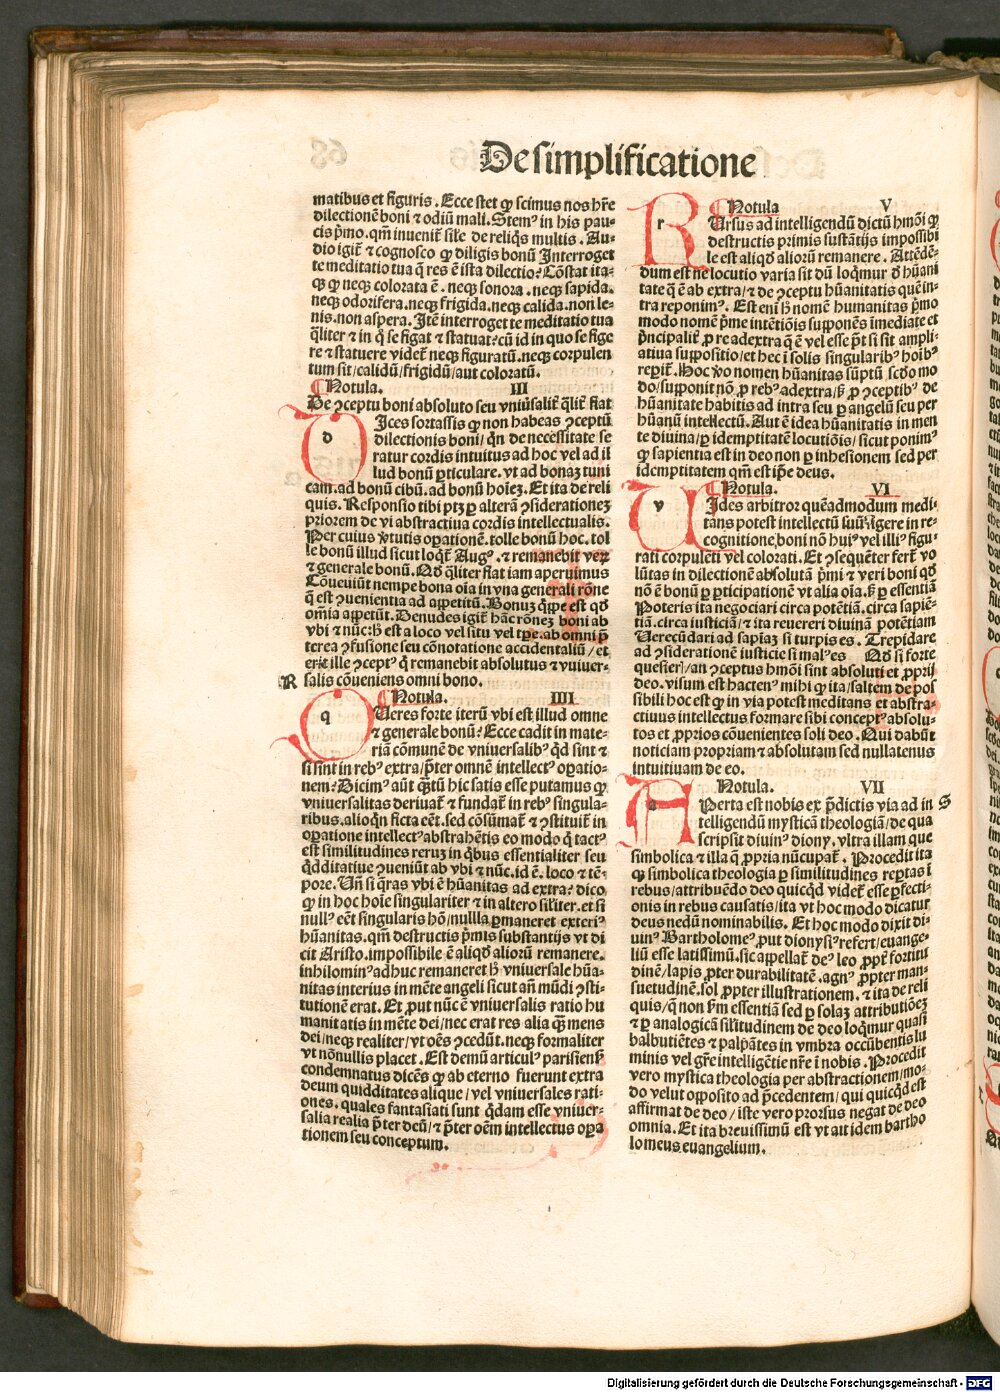 De simplificatione
matibus et figuris. Ecce stet ꝙ scimus nos hr̄e
dilectionē boni ⁊ odiū mali. Stemꝰ in his pau-
cis p̄mo. qm̄ inuenit̃ sil'e de reliq̄s multis. Au-
dio igit̃ ⁊ cognosco ꝙ diligis bonū Interroget
te meditatio tua q̄ res ē ista dilectio? Cōstat ita-
qꝫ ꝙ neqꝫ colorata ē. neqꝫ sonora. neqꝫ sapida.
neqꝫ odorifera. neqꝫ frigida. neqꝫ calida. non le-
nis. non aspera. Itē interroget te meditatio tua
q̄liter ⁊ in q̄ se figat ⁊ statuat? cū id in quo se fige
re ⁊ statuere videt̃ neqꝫ figuratū. neqꝫ corpulen
tum sit/calidū/frigidū/aut coloratū.
¶ Notula. III
De ꝯceptu boni absoluto seu vniūsalit̃ q̄lit̃ fiat
d Ices fortassis ꝙ non habeas ꝯceptū
dilectionis boni/ q̄n de necessitate fe
ratur cordis intuitus ad hoc vel ad il
lud bonū ꝑticulare. vt ad bonaꝫ tuni
cam. ad bonū cibū. ad bonū hoīeꝫ. Et ita de reli
quis. Responsio tibi ptꝫ ꝑ alterā ꝯsiderationeꝫ
priorem de vi abstractiua cordis intellectualis.
Per cuius v̓tutis oꝑationē. tolle bonū hoc. tol
le bonū illud sicut loq̄t̃ Augꝰ. ⁊ remanebit veꝝ
⁊ generale bonū. Qd̄ q̄liter fiat iam aperuimus
Cōueniūt nempe bona oīa in vna generali rōne
q̄ est ꝯuenientia ad appetitū. Bonuꝫ q̄ppe est qd̄
omīa appetūt. Denudes igit̃ hāc rōneꝫ boni ab
vbi ⁊ nūc: hꝫ est a loco vel situ vel tꝑe. ab omni p̄
terea ꝯfusione seu cōnotatione accidentaliū/ et
erit ille ꝯceptꝰ q̄ remanebit absolutus ⁊ vniuer-
R salis cōueniens omni bono.
¶ Notula. IIII
q Ueres forte iterū vbi est illud omne
⁊ generale bonū? Ecce cadit in mate-
riā cōmunē de vniuersalibꝰ q̄d sint ⁊
si sint in rebꝰ extra/p̄ter omnē intellectꝰ oꝑatio-
nem? Dicimꝰ aūt q̄ntū hic satis esse putamus ꝙ
vniuersalitas deriuat̃ ⁊ fundat̃ in rebꝰ singula-
ribus. alioq̄n ficta eēt. sed cōsūmat̃ ⁊ ꝯstituit̃ in
oꝑatione intellectꝰ abstrahētis eo modo q̄ tactꝰ
est similitudines reruꝫ in q̄bus essentialiter seu
q̄dditatiue ꝯueniūt ab vbi ⁊ nūc. id ē. loco ⁊ tē-
pore. Un̄ si q̄ras vbi ē hūanitas ad extra? dico
ꝙ in hoc hoīe singulariter ⁊ in altero sil'iter. et si
nullꝰ eēt singularis hō/nullla ꝑmaneret exteriꝰ
hūanitas. qm̄ destructis p̄mis substantijs vt di
cit Aristo. impossibile ē aliqd̄ aliorū remanere.
inhilominꝰ adhuc remaneret hꝫ vniuersale hūa-
nitas interius in mēte angeli sicut an̄ mūdi ꝯsti-
tutionē erat. Et ꝓut nūc ē vniuersalis ratio hu
manitatis in mēte dei/nec erat res alia q̄ꝫ mens
dei/neqꝫ realiter/vt oēs ꝯcedūt. neqꝫ formaliter
vt nōnullis placet. Est demū articulꝰ parisien̄
condemnatus dicēs ꝙ ab eterno fuerunt extra
deum quidditates alique/vel vniuersales rati-
ones. quales fantasiati sunt q̄dam esse vniuer-
salia realia p̄ter deū/ ⁊ p̄ter oēm intellectus oꝑa
tionem seu conceptum.
¶ Notula V
r Ursus ad intelligendū dictū hmōi ꝙ
destructis primis sustātijs impossibi
le est aliqd̄ aliorū remanere. Attēdē-
dum est ne locutio varia sit dū loq̄mur d̄ hūani
tate q̄ ē ab extra/ ⁊ de ꝯceptu hūanitatis quē in-
tra reponimꝰ. Est enī hꝫ nomē humanitas p̄mo
modo nomē p̄me intētiōis supponēs imediate et
p̄ncipalit̃ ꝓ re ad extra q̄ ē vel esse p̄t si sit ampli-
atiua suppositio/et hec i solis singularibꝰ hoībꝰ
reꝑit̃. Hoc v̓o nomen hūanitas sūptū scd̄o mo
do/supponit nō ꝓ rebꝰ ad extra/sꝫ ꝓ ꝯceptibꝰ de
hūanitate habitis ad intra seu ꝑ angelū seu per
hūanū intellectū. Aut ē idea hūanitatis in men
te diuina/ꝑ idemptitatē locutiōis/sicut ponimꝰ
ꝙ sapientia est in deo non ꝑ inhesionem sed per
idemptitatem qm̄ est ip̄e deus.
¶ Notula. VI
v Ides arbitror quēadmodum medi-
tans potest intellectū suū figere in re-
cognitione/boni nō huiꝰ vel illiꝰ figu-
rati corpulēti vel colorati. Et ꝯsequēter fert̃ vo
lūtas in dilectionē absolutā p̄mi ⁊ veri boni qd̄
nō ē bonū ꝑ ꝑticipationē vt alia oīa. sꝫ ꝑ essentiā
Poteris ita negociari circa potētiā. circa sapiē-
tiā. circa iusticiā/ ⁊ ita reuereri diuinā potētiam
Uerecūdari ad sapiaꝫ si turpis es. Trepidare
ad ꝯsiderationē iusticie si malꝰ es Qd̄ si forte
quesieri/ an ꝯceptus hmōi sint absoluti et ꝓprij
deo. visum est hactenꝰ mihi ꝙ ita/saltem de pos
sibili hoc est ꝙ in via potest meditans et abstra-
ctiuus intellectus formare sibi conceptꝰ absolu-
tos et ꝓprios cōuenientes soli deo. Qui dabūt
noticiam propriam ⁊ absolutam sed nullatenus
intuitiuam de eo.
Notula. VII
a Perta est nobis ex p̄dictis via ad in S
telligendū mysticā theologiā/de qua
scripsit diuinꝰ diony. vltra illam que
simbolica ⁊ illa q̄ ꝓpria nūcupat̃. Procedit ita
qꝫ simbolica theologia ꝑ similitudines reꝑtas i
rebus/attribuēdo deo quicq̄d videt̃ esse ꝑfecti-
onis in rebus causatis/ita vt hoc modo dicatur
deus nedū nominabilis. Et hoc modo dixit di-
uinꝰ Bartholomeꝰ/ꝓut dionysiꝰ refert/euange-
liū esse latissimū. sic appellat̃ deꝰ leo ꝓpt̃ fortitu
dinē/lapis ꝓpter durabilitatē. agnꝰ ꝓpter man-
suetudinē. sol ꝓpter illustrationem. ⁊ ita de reli
quis/q̄ non ẜm essentiā sed ꝑ solaꝫ attributiōeꝫ
⁊ ꝑ analogicā sil'itudinem de deo loq̄mur quasi
balbutiētes ⁊ palpātes in vmbra occūbentis lu
minis vel gr̄e intelligētie nr̄e i nobis. Procedit
vero mystica theologia per abstractionem/mo-
do velut opposito ad p̄cedentem/ qui quicq̄d est
affirmat de deo/ iste vero prorsus negat de deo
omnia. Et ita breuissimū est vt ait idem bartho
lomeus euangelium.
Digitalisierung gefördert durch die Deutsche Forschungsgemeinschaft - DFG